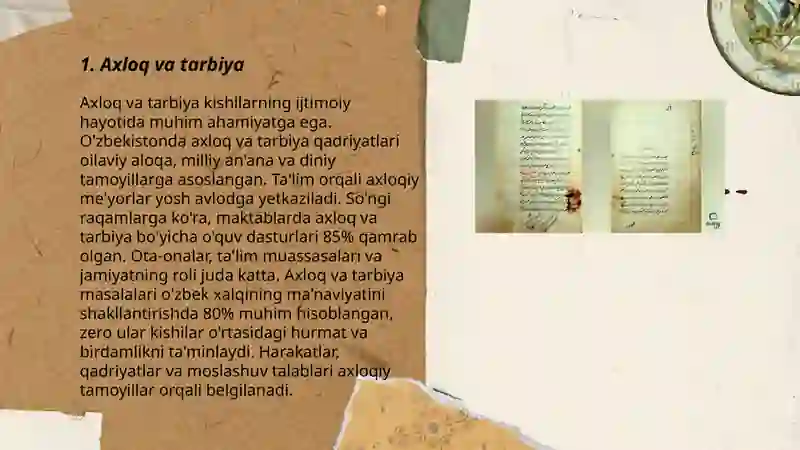 1. Axloq va tarbiya
Axloq va tarbiya kishilarning ijtimoiy
hayotida muhim ahamiyatga ega.
O'zbekistonda axloq va tarbiya qadriyatlari
oilaviy aloqa, milliy an'ana va diniy
tamoyillarga asoslangan. Ta'lim orqali axloqiy
me'yorlar yosh avlodga yetkaziladi. So'ngi
raqamlarga ko'ra, maktablarda axloq va
tarbiya bo'yicha o'quv dasturlari 85% qamrab
olgan. Ota-onalar, ta'lim muassasalari va
jamiyatning roli juda katta. Axloq va tarbiya
masalalari o'zbek xalqining ma'naviyatini
shakllantirishda 80% muhim hisoblangan,
zero ular kishilar o'rtasidagi hurmat va
birdamlikni ta'minlaydi. Harakatlar,
qadriyatlar va moslashuv talablari axloqiy
tamoyillar orqali belgilanadi.